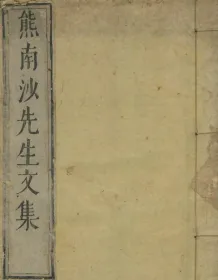 熊南沙先生文集